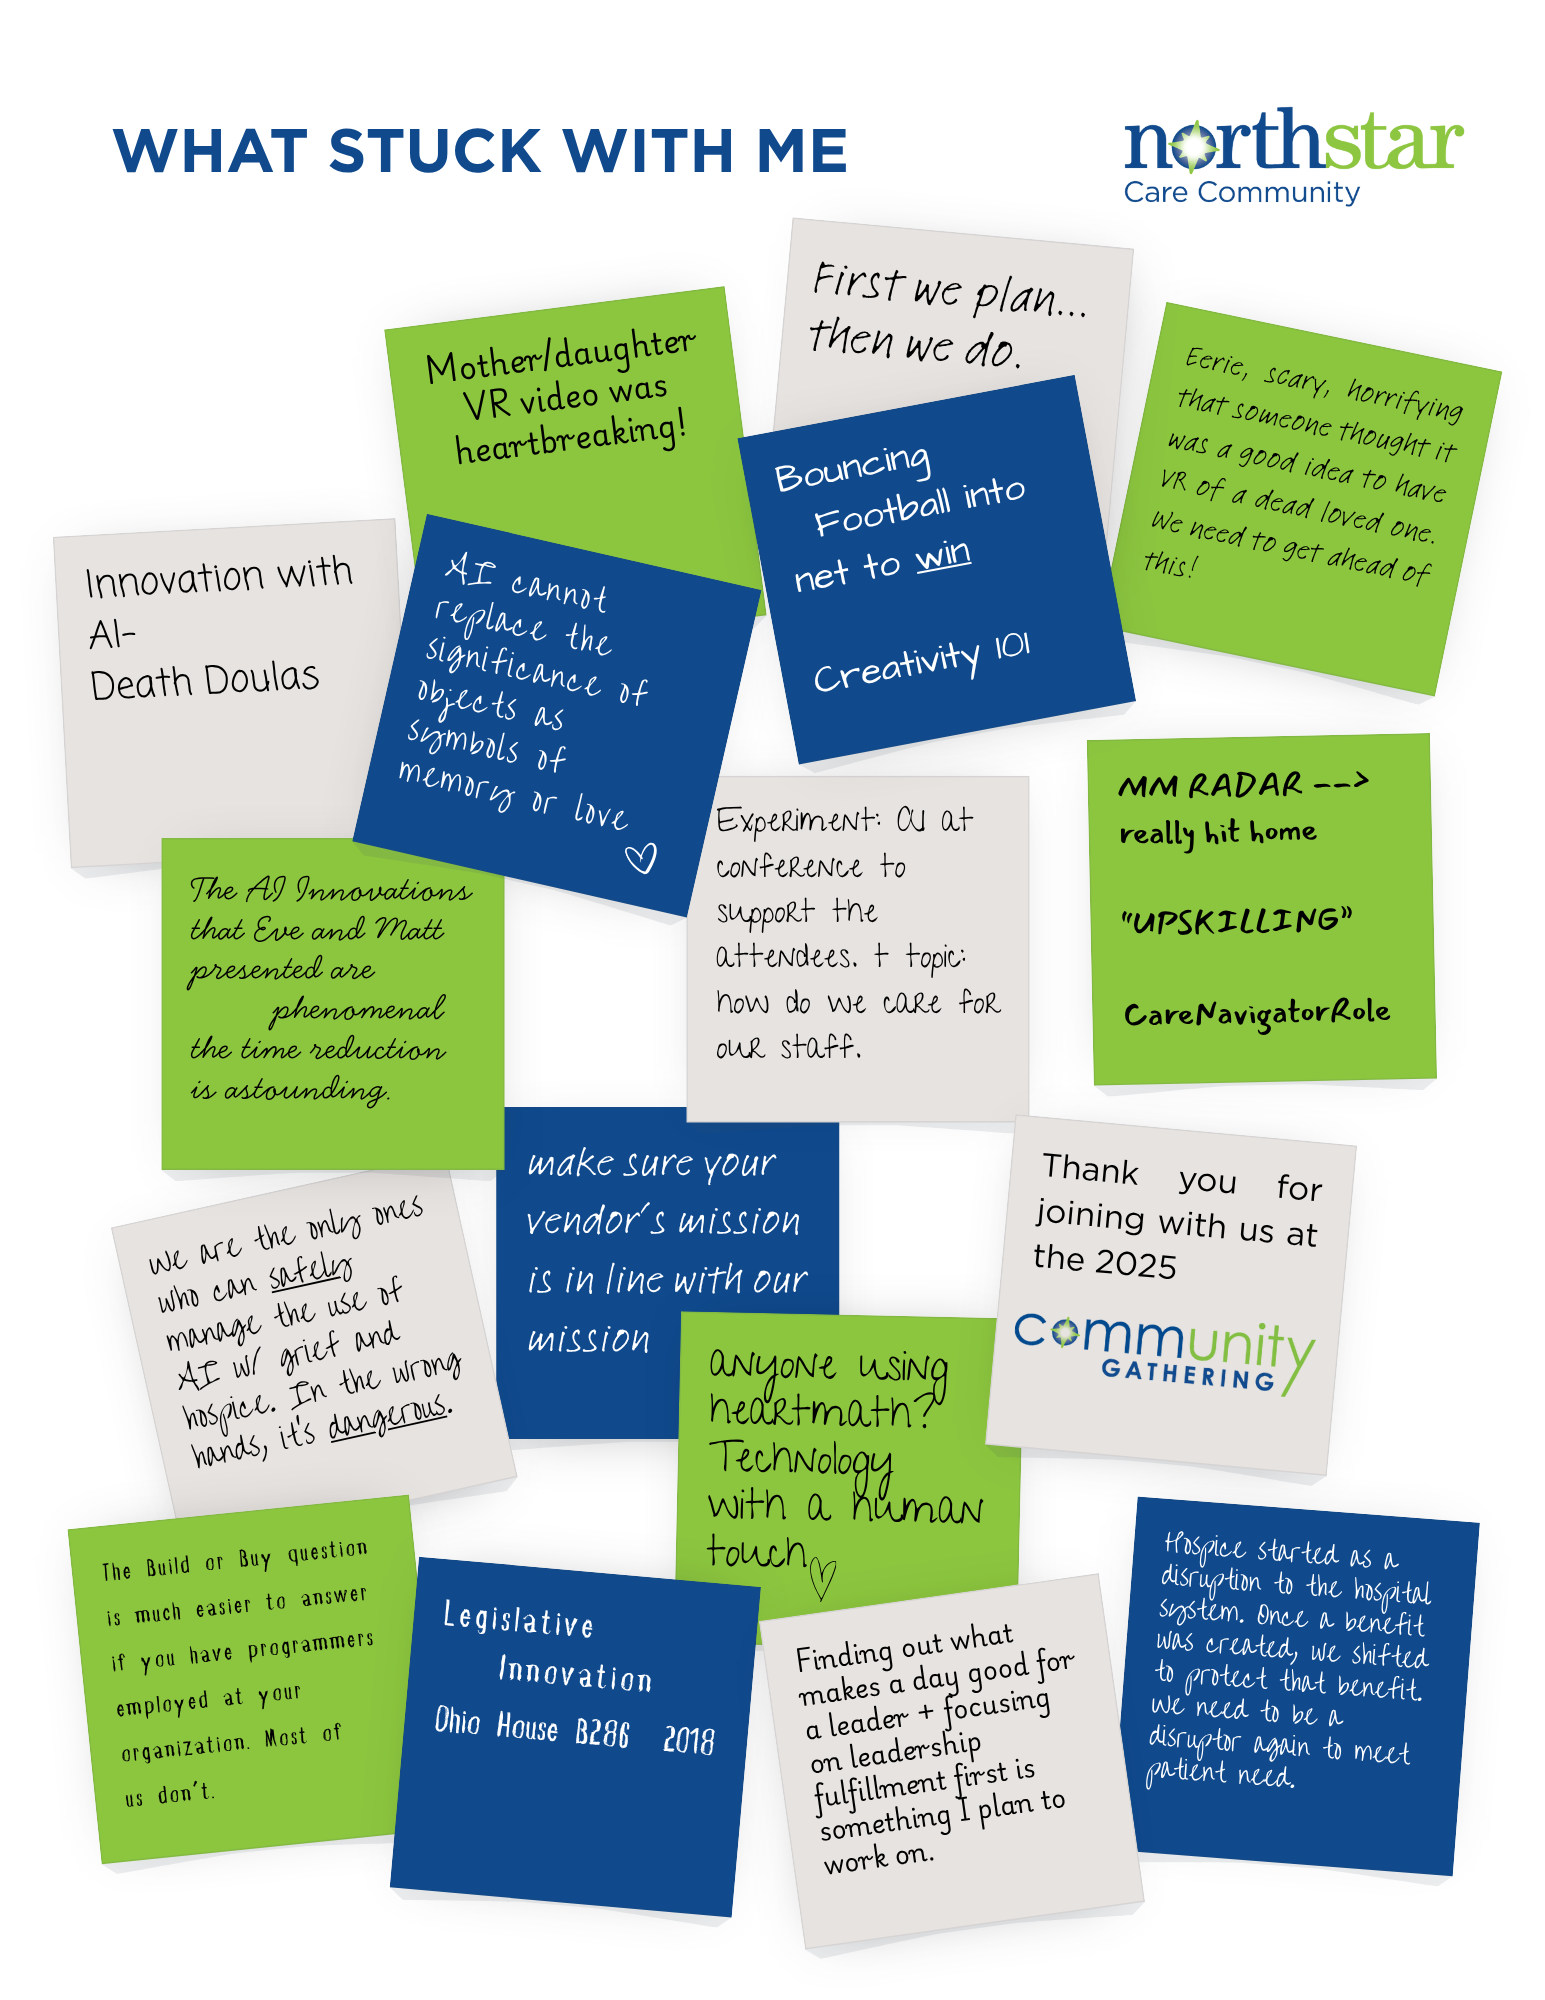 WHAT STUCK WITH ME
northstar
Care Community
First we plan...
then we do.
Mother/daughter
VR video was
heartbreaking!
Eerie, scary, horrifying
that someone thought it
was a good idea to have
VR of a dead loved one.
We need to get ahead of
this!
Bouncing
Football into
net to win
Creativity 101
Innovation with
AI-
Death Doulas
AI cannot
replace the
significance of
objects as
symbols of
memory or love
MM RADAR -->
really hit home
"UPSKILLING"
CareNavigatorRole
Experiment: CU at
conference to
support the
attendees. + topic:
how do we care for
our staff.
The AI Innovations
that Eve and Matt
presented are
phenomenal
the time reduction
is astounding.
make sure your
vendor's mission
is in line with our
mission
Thank you for
joining with us at
the 2025
community
GATHERING
we are the only ones
who can safely
manage the use of
AI w/ grief and
hospice. In the wrong
hands, it's dangerous.
anyone using
heartmath?
Technology
with a human
touch
The Build or Buy question
is much easier to answer
if you have programmers
employed at your
organization. Most of
us don't.
Legislative
Innovation
Ohio House B286 2018
Finding out what
makes a day good for
a leader + focusing
on leadership
fulfillment first is
something I plan to
work on.
Hospice started as a
disruption to the hospital
system. Once a benefit
was created, we shifted
to protect that benefit.
We need to be a
disruptor again to meet
patient need.